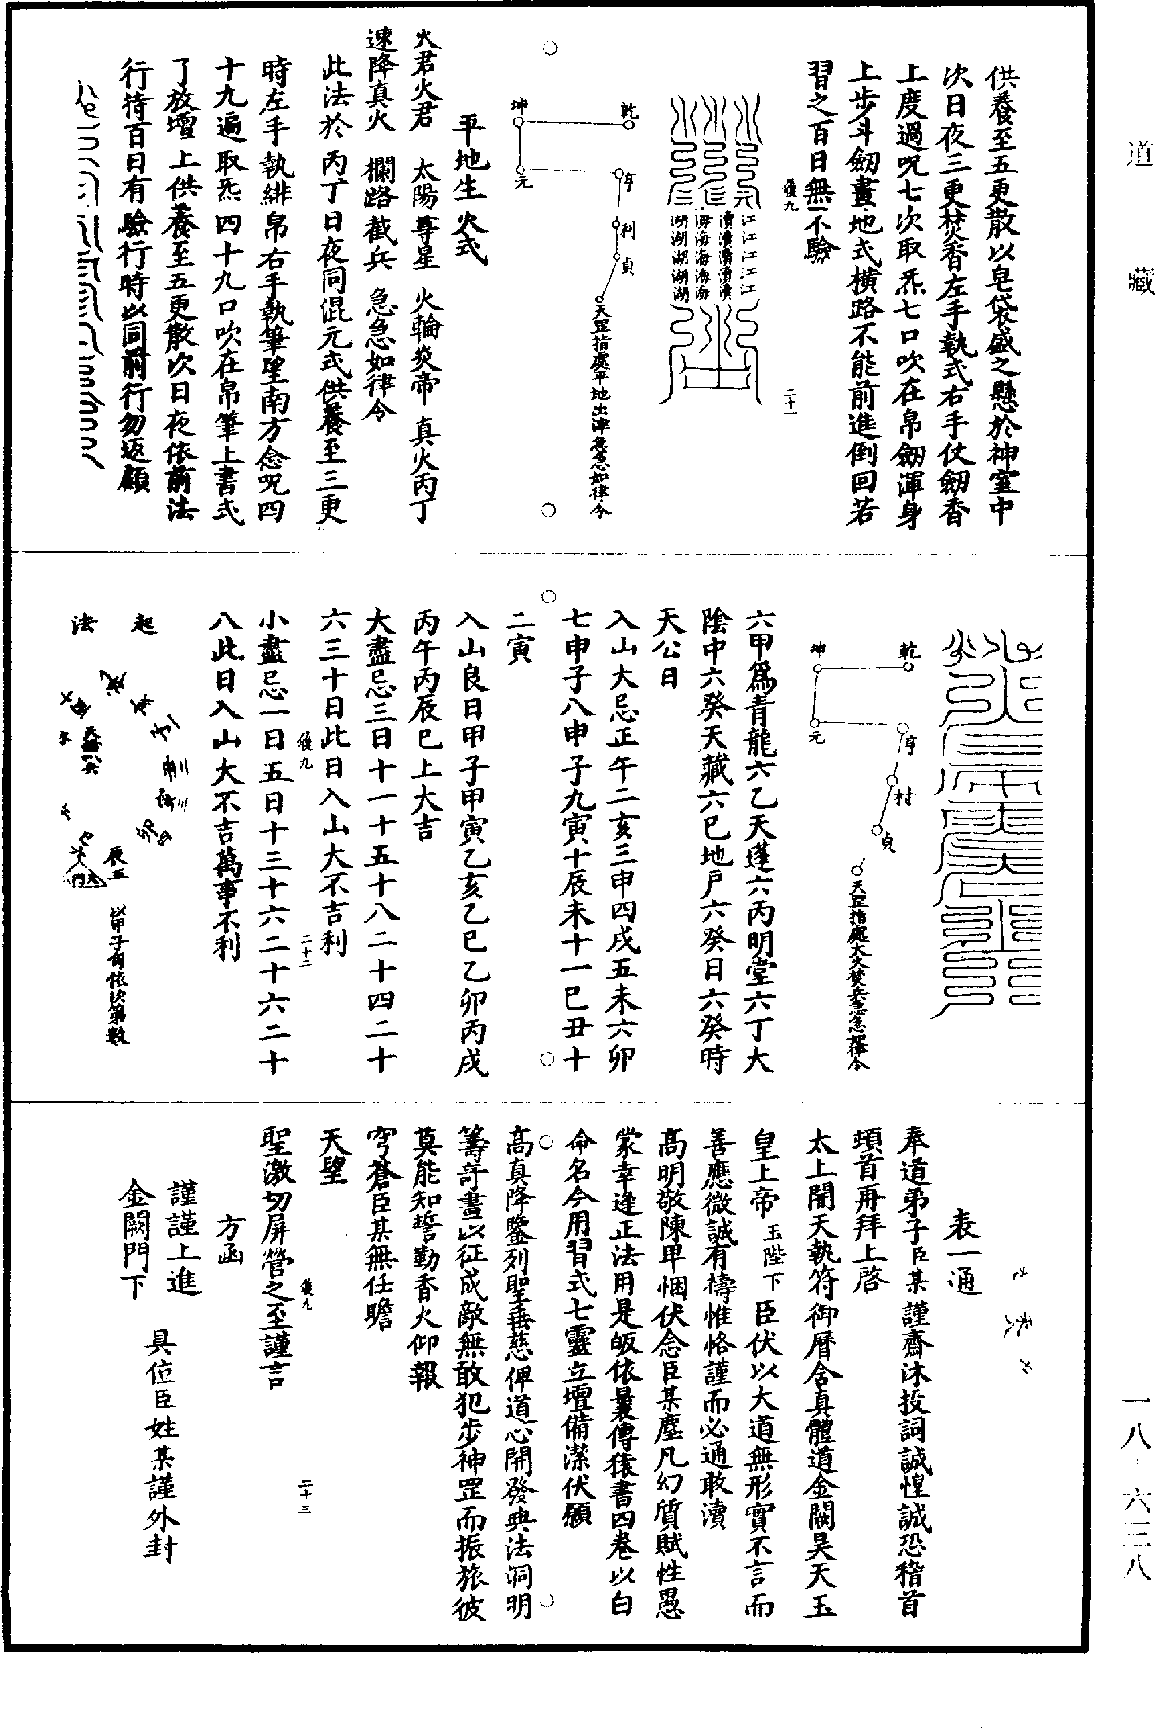 道藏
供養至五更散以皂袋盛之懸於神室中
次日夜三更焚香左手執式右手仗劒香
上度過呪七次取炁七口吹在帛劒渾身
上步斗劒畫地式橫路不能前進倒回若
習之百日無不驗
後九
二十一
江江江江江
瀆瀆瀆瀆瀆
海海海海海
湖湖湖湖湖
乾
坤
元
亨
利
貞
天罡指處平地出津急急如律令
平地生火式
火君火君　太陽尊星　火輪炎帝　真火丙丁
速降真火　欄路截兵　急急如律令
此法於丙丁日夜同混元式供養至三更
時左手執緋帛右手執筆望南方念呪四
十九遍取炁四十九口吹在帛筆上書式
了放壇上供養至五更散次日夜依前法
行持百日有驗行時以同前行勿返顧
乾
坤
元
亨
村
貞
天罡指處大火焚兵急急律令
六甲爲青龍六乙天蓬六丙明堂六丁大
陰中六癸天藏六巳地戶六癸日六癸時
天公日
入山大忌正午二亥三申四戌五未六卯
七申子八申子九寅十辰未十一巳丑十
二寅
入山良日甲子甲寅乙亥乙巳乙卯丙戌
丙午丙辰巳上大吉
大盡忌三日十一十五十八二十四二十
六三十日此日入山大不吉利
後九
二十二
小盡忌一日五日十三十六二十六二十
八此日入山大不吉萬事不利
起
法
辰五
以甲子旬依次第數
表一通
奉道弟子臣某謹齋沐投詞誠惶誠恐稽首
頓首再拜上啓
太上開天執符御曆含真體道金闕昊天玉
皇上帝　玉陛下　臣伏以大道無形實不言而
善應微誠有禱惟恪謹而必通敢瀆
高明敬陳卑悃伏念臣某塵凡幻質賦性愚
蒙幸逢正法用是皈依曩傳猿書四卷以白
命名今用習式七靈立壇備潔伏願
高真降鑒列聖垂慈俾道心開發典法洞明
籌竒畫以征成敵無敢犯步神罡而振旅彼
莫能知誓勤香火仰報
穹蒼臣某無任瞻
天望
後九
二十三
聖激切屏營之至謹言
方函
謹謹上進　具位臣姓某謹外封
金闕門下
一八·六三八